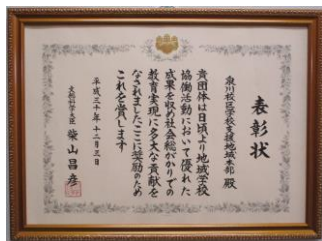 表彰状
取川校区学校支援地域本部 殿
貴団体は日頃より地域学校
協働活動において優れた
成果を収め社会総がかりでの
教育実現に多大な貢献を
なされましたここに奨励のため
これを賞します
平成三十年十二月三日
文部科学大臣 柴山昌彦